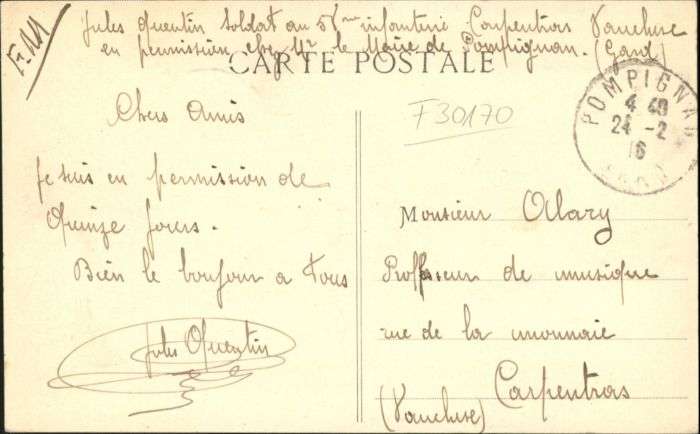 F.M
Jules Quentin soldat au 58me infanterie Carpentras Vaucluse
en permission chez Mr le Maire de Pompignan. (Gard)
CARTE POSTALE
F30170
POMPIGNAN
4 40
24 - 2
16
GARD
Chers Amis
Je suis en permission de
Quinze jours.
Bien le bonjour a Tous
Jules Quentin
Monsieur Alary
Professeur de musique
rue de la monnaie
Carpentras
(Vaucluse)